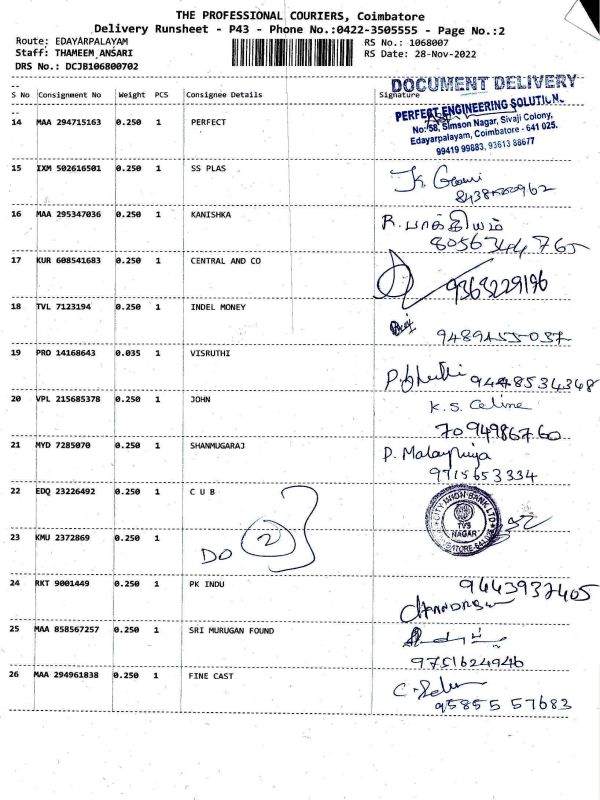 THE PROFESSIONAL COURIERS, Coimbatore
Delivery Runsheet - P43 - Phone No.:0422-3505555 - Page No.:2
Route: EDAYARPALAYAM RS No.: 1068007
Staff: THAMEEM ANSARI RS Date: 28-Nov-2022
DRS No.: DCJB106800702
DOCUMENT DELIVERY
S No Consignment No Weight PCS Consignee Details Signature
PERFECT ENGINEERING SOLUTION
14 MAA 294715163 0.250 1 PERFECT
No: 58, Simson Nagar, Sivaji Colony,
Edayarpalayam, Coimbatore - 641 025.
99419 99883, 93613 88677
15 IXM 502616501 0.250 1 SS PLAS
16 MAA 295347036 0.250 1 KANISHKA R. பாக்கியம்
8056344765
17 KUR 608541683 0.250 1 CENTRAL AND CO
9363229196
18 TVL 7123194 0.250 1 INDEL MONEY
19 PRO 14168643 0.035 1 VISRUTHI
9448534348
20 VPL 215685378 0.250 1 JOHN K. S. Celine
7094986760
21 MYD 7285070 0.250 1 SHANMUGARAJ
9715653334
22 EDQ 23226492 0.250 1 C U B
CITY UNION BANK LTD
TVS
NAGAR
23 KMU 2372869 0.250 1
DO 2
24 RKT 9001449 0.250 1 PK INDU 9443937405
25 MAA 858567257 0.250 1 SRI MURUGAN FOUND
9751624946
26 MAA 294961838 0.250 1 FINE CAST
95855 57683